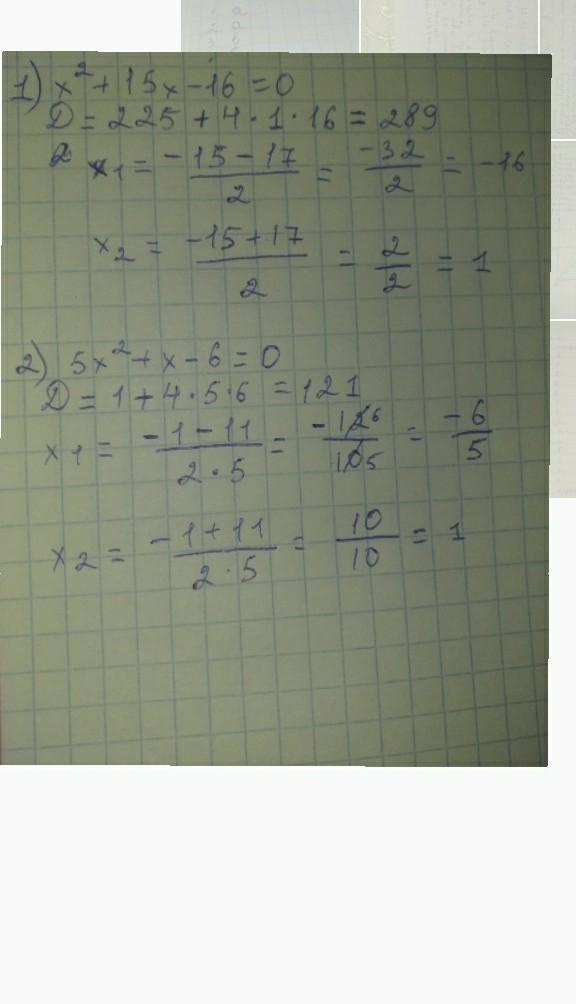 1) x² + 15x - 16 = 0
D = 225 + 4 · 1 · 16 = 289
x1 = (-15 - 17)/2 = -32/2 = -16
x2 = (-15 + 17)/2 = 2/2 = 1
2) 5x² + x - 6 = 0
D = 1 + 4 · 5 · 6 = 121
x1 = (-1 - 11)/(2 · 5) = -12 6/10 5 = -6/5
x2 = (-1 + 11)/(2 · 5) = 10/10 = 1